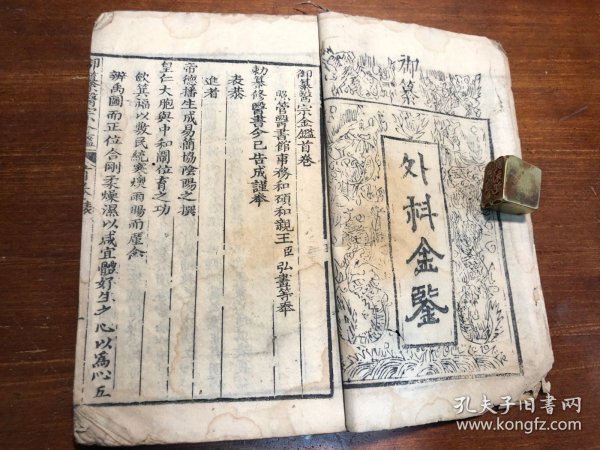 御纂
外科金鑒
御纂醫宗金鑑首卷
照管醫書館事務和碩和親王臣弘晝等奉
勅纂修醫書今已告成謹奉
表恭
進者
帝德播生成易簡協陰陽之撰
皇仁大胞與中和闡位育之功
歛箕福以敷民統寒燠雨暘而歷念
辨禹圖而正位合剛柔燥濕以咸宜體好生之心以為心五
孔夫子旧書网
www.kongfz.com